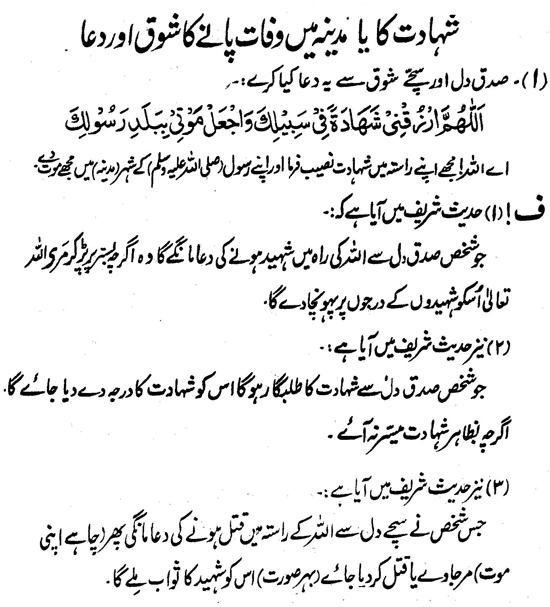 شہادت کا یا مدینہ میں وفات پانے کا شوق اور دعا
(۱)۔ صدق دل اور سچے شوق سے یہ دعا کیا کرے:۔
اَللّٰهُمَّ ارْزُقْنِيْ شَهَادَةً فِيْ سَبِيْلِكَ وَاجْعَلْ مَوْتِيْ بِبَلَدِ رَسُوْلِكَ
اے اللہ! مجھے اپنے راستہ میں شہادت نصیب فرما اور اپنے رسول (صلی اللہ علیہ وسلم) کے شہر (مدینہ) میں مجھے موت دے۔
ف! (۱) حدیث شریف میں آیا ہے کہ:۔
جو شخص صدق دل سے اللہ کی راہ میں شہید ہونے کی دعا مانگے گا وہ اگرچہ بستر پر پڑ کر مرے اللہ
تعالیٰ اُسکو شہیدوں کے درجوں پر پہونچا دے گا۔
(۲) نیز حدیث شریف میں آیا ہے:۔
جو شخص صدق دل سے شہادت کا طلبگار ہوگا اس کو شہادت کا درجہ دے دیا جائے گا۔
اگرچہ بظاہر شہادت میسر نہ آئے۔
(۳) نیز حدیث شریف میں آیا ہے:۔
جس شخص نے سچے دل سے اللہ کے راستہ میں قتل ہونے کی دعا مانگی پھر (چاہے اپنی
موت) مر جاوے یا قتل کر دیا جائے (بہر صورت) اس کو شہید کا ثواب ملے گا۔